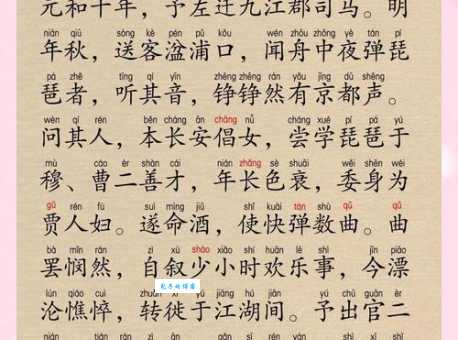 元和十年，予左迁九江郡司马。明
nián qiū sòng kè pén pǔ kǒu wén zhōu zhōng yè tán pí
年秋，送客湓浦口，闻舟中夜弹琵
pá zhě tīng qí yīn zhēng zhēng rán yǒu jīng dū shēng
琶者，听其音，铮铮然有京都声。
wèn qí rén běn cháng ān chāng nǚ cháng xué pí pá yú
问其人，本长安倡女，尝学琵琶于
mù cáo èr shàn cái nián zhǎng sè shuāi wěi shēn wéi
穆、曹二善才，年长色衰，委身为
gǔ rén fù suì mìng jiǔ shǐ kuài tán shù qǔ qǔ
贾人妇。遂命酒，使快弹数曲。曲
bà mǐn rán zì xù shào xiǎo shí huān lè shì jīn piāo
罢悯然，自叙少小时欢乐事，今漂
lún qiáo cuì zhuǎn xǐ yú jiāng hú jiān yú chū guān èr
沦憔悴，转徙于江湖间。予出官二